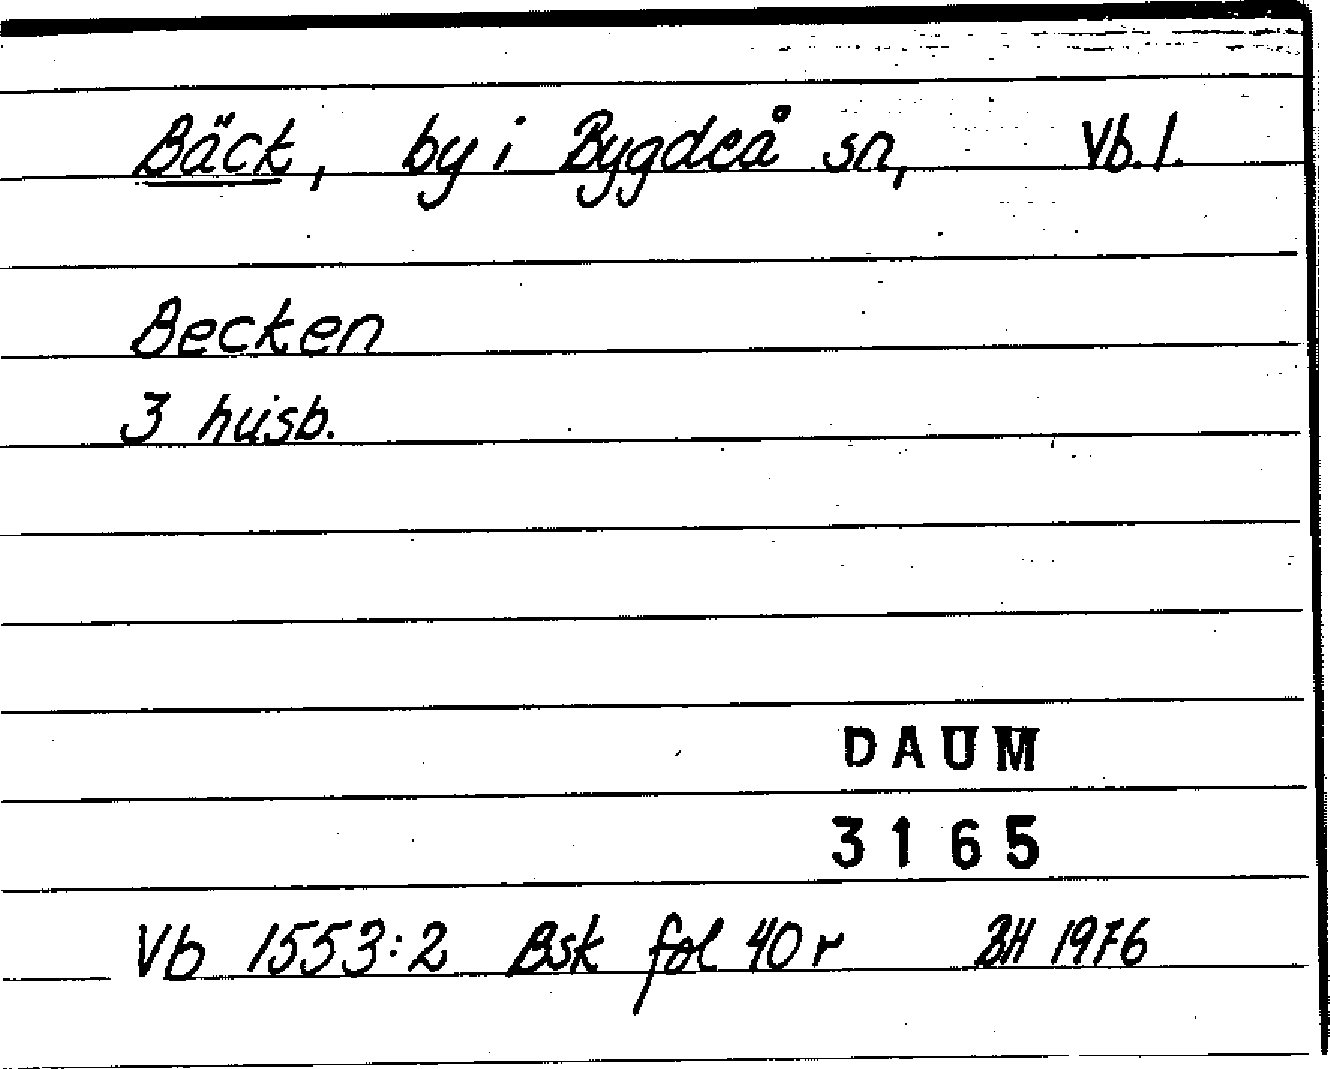 Bäck, by i Bygdeå sn, Vb. l.
Becken
3 husb.
DAUM
3165
Vb 1553:2 Bsk fol 40 r BH 1976